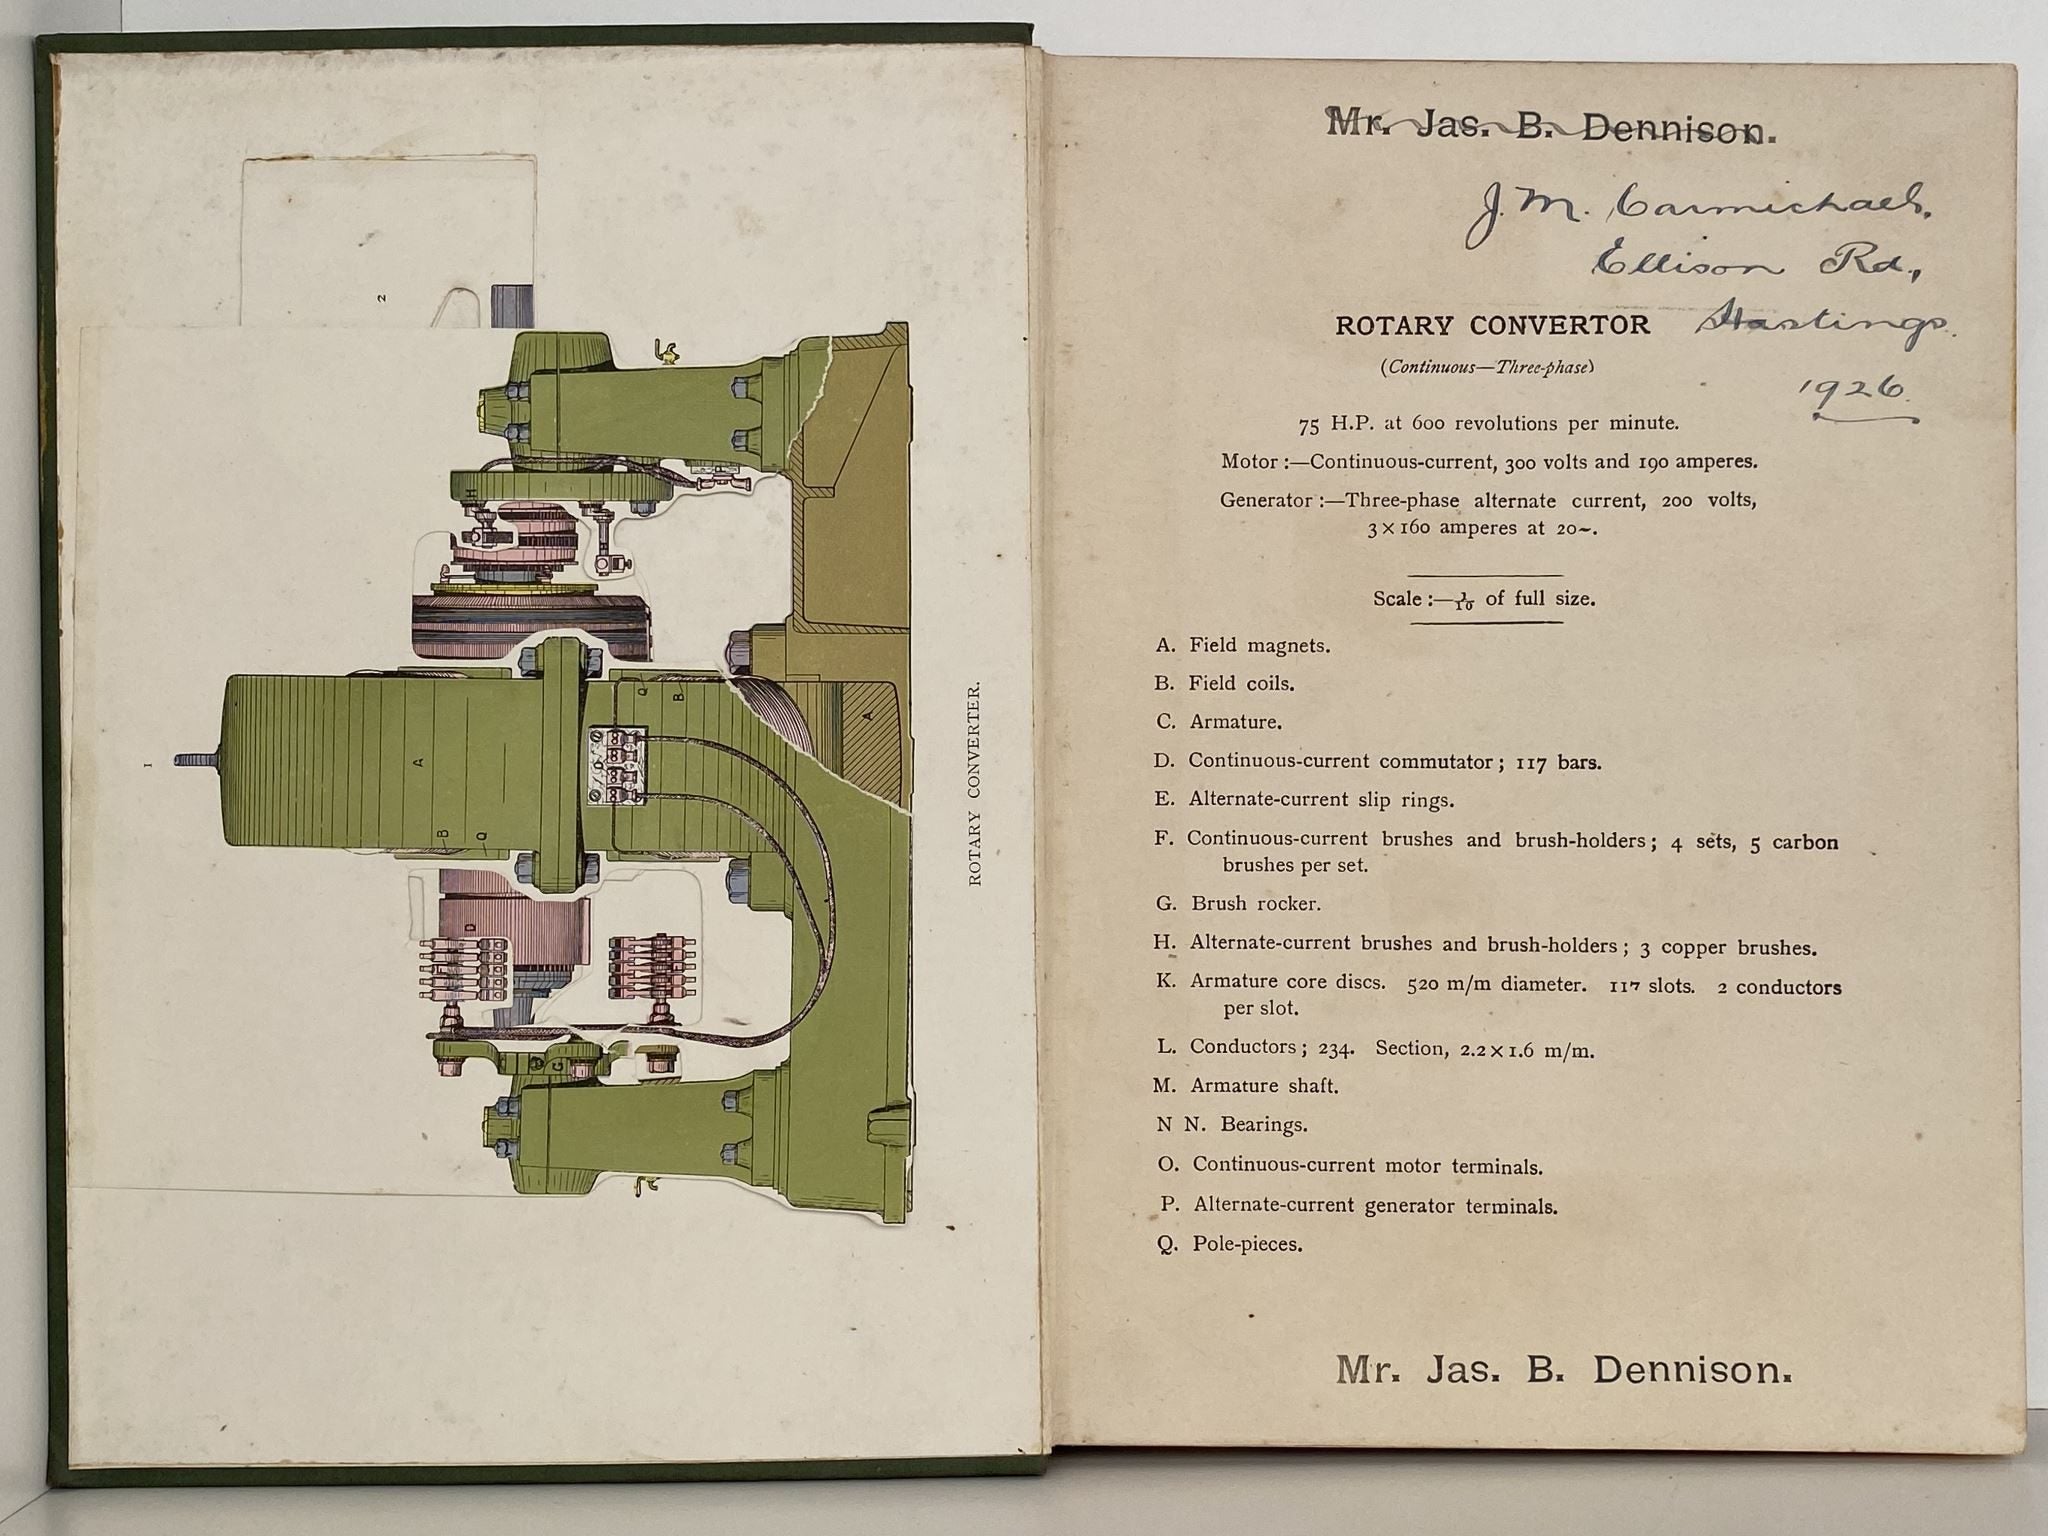 2
1
H
A
B
Q
Q
B
A
O
D
F
G
ROTARY CONVERTER.
Mr. Jas. B. Dennison.
J. M. Carmichael.
Ellison Rd.,
Hastings.
1926.
ROTARY CONVERTOR
(Continuous—Three-phase)
75 H.P. at 600 revolutions per minute.
Motor :—Continuous-current, 300 volts and 190 amperes.
Generator :—Three-phase alternate current, 200 volts,
3 × 160 amperes at 20~.
Scale :—1/10 of full size.
A. Field magnets.
B. Field coils.
C. Armature.
D. Continuous-current commutator ; 117 bars.
E. Alternate-current slip rings.
F. Continuous-current brushes and brush-holders ; 4 sets, 5 carbon
brushes per set.
G. Brush rocker.
H. Alternate-current brushes and brush-holders ; 3 copper brushes.
K. Armature core discs. 520 m/m diameter. 117 slots. 2 conductors
per slot.
L. Conductors ; 234. Section, 2.2 × 1.6 m/m.
M. Armature shaft.
N N. Bearings.
O. Continuous-current motor terminals.
P. Alternate-current generator terminals.
Q. Pole-pieces.
Mr. Jas. B. Dennison.